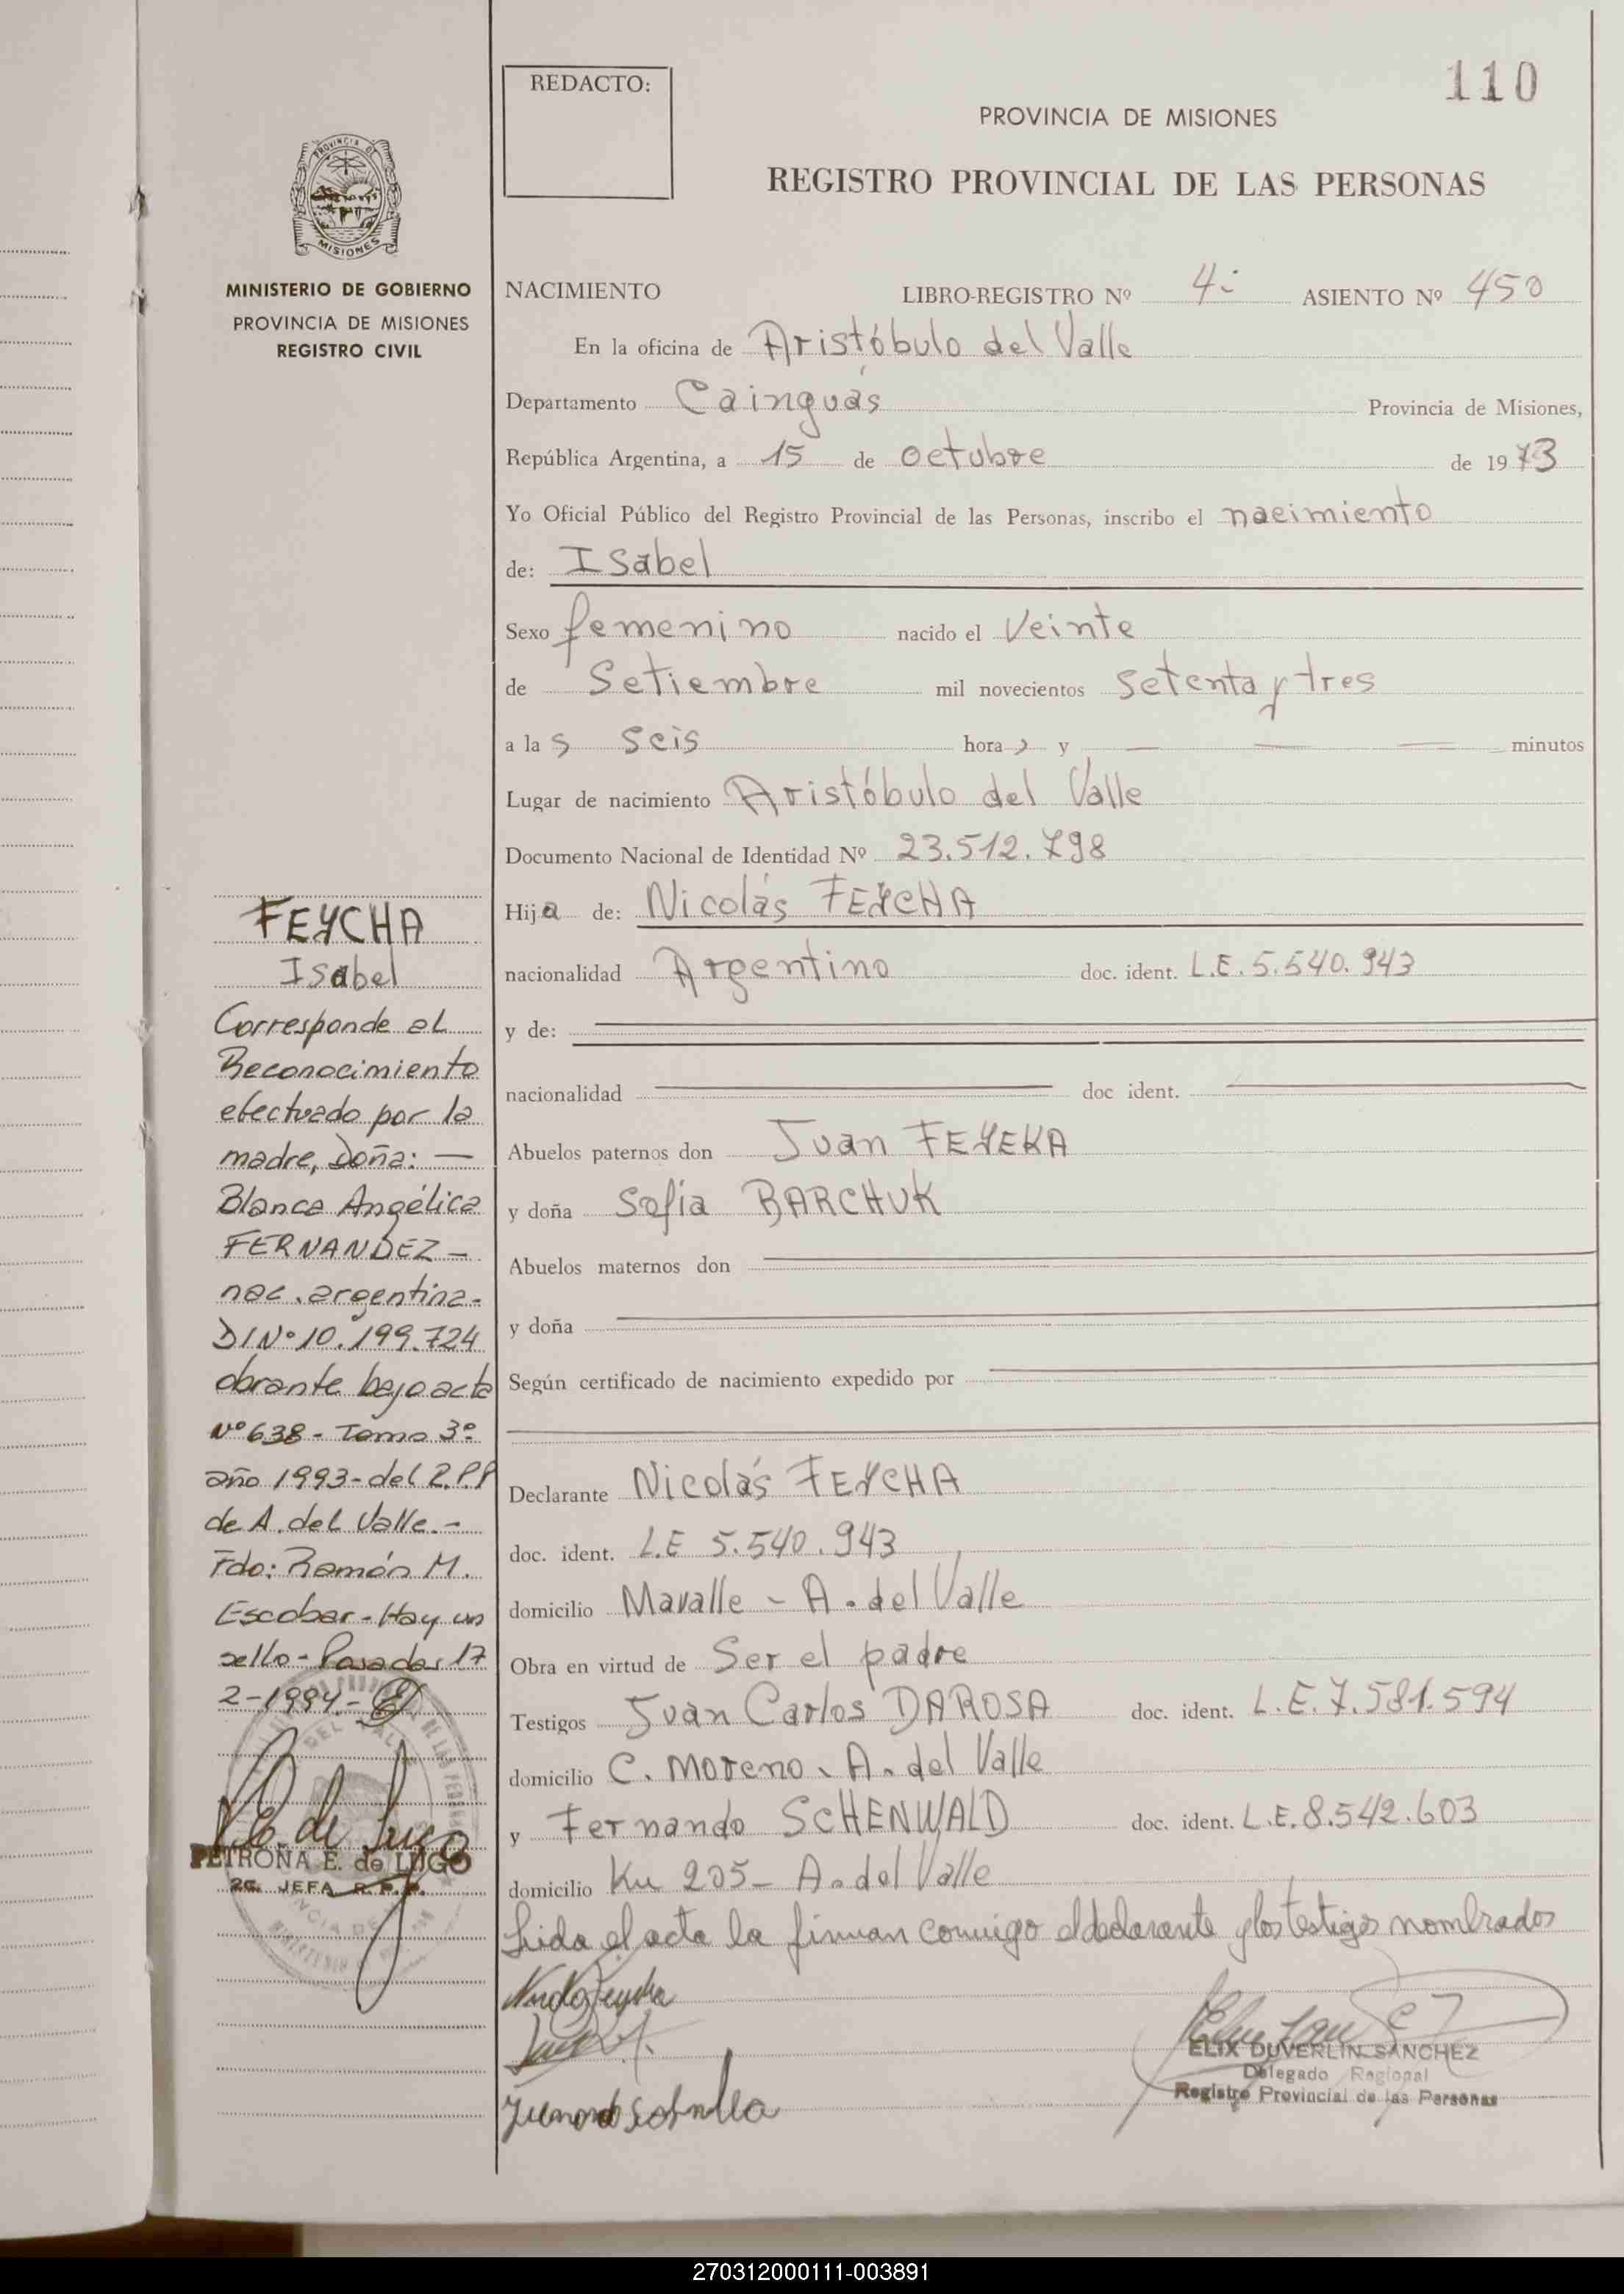 110
REDACTO:
PROVINCIA DE MISIONES
REGISTRO PROVINCIAL DE LAS PERSONAS
PROVINCIA DE
MISIONES
MINISTERIO DE GOBIERNO
PROVINCIA DE MISIONES
REGISTRO CIVIL
NACIMIENTO LIBRO-REGISTRO Nº 4- ASIENTO Nº 450
En la oficina de Aristóbulo del Valle
Departamento Cainguás Provincia de Misiones,
República Argentina, a 15 de octubre de 1973
Yo Oficial Público del Registro Provincial de las Personas, inscribo el nacimiento
de: Isabel
Sexo femenino nacido el Veinte
de Setiembre mil novecientos setenta y tres
a las seis hora s y — — — minutos
Lugar de nacimiento Aristóbulo del Valle
Documento Nacional de Identidad Nº 23.512.798
Hija de: Nicolás FEYCHA
nacionalidad Argentino doc. ident. L.E. 5.540.943
y de:
nacionalidad doc ident.
Abuelos paternos don Juan FEYEKA
y doña Sofía BARCHUK
Abuelos maternos don
y doña
Según certificado de nacimiento expedido por
Declarante Nicolás FEYCHA
doc. ident. L.E 5.540.943
domicilio Mavalle - A. del Valle
Obra en virtud de Ser el padre
Testigos Juan Carlos DAROSA doc. ident. L.E. 7.581.594
domicilio C. Moreno - A. del Valle
y Fernando SCHENWALD doc. ident. L.E. 8.542.603
domicilio Km 205- A. del Valle
Leida el acta la firman conmigo el declarante y los testigos nombrados
ELIX DUVERLIN SANCHEZ
Delegado Regional
Registro Provincial de las Personas
FEYCHA
Isabel
Corresponde al
Reconocimiento
efectuado por la
madre, Doña: —
Blanca Angélica
FERNANDEZ -
nac. argentina-
DIN° 10.199.724
obrante bajo acta
Nº 638 - Tomo 3º
año 1993 - del R.P.P
de A. del Valle. -
Fdo: Ramón M.
Escobar - Hay un
sello - Posadas 17
2-1994.-
PETRONA E. de LUGO
2C. JEFA R.P.P.
270312000111-003891